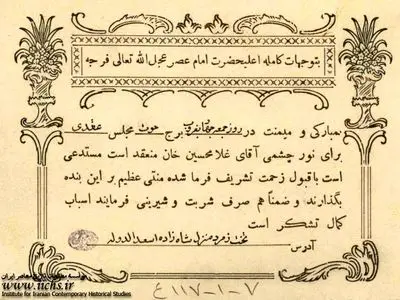 بتوجهات کامله اعلیحضرت امام عصر عجل الله تعالی فرجه
بمبارکی و میمنت در روز جمعه برج حوت مجلس عقدی
برای نور چشمی آقای غلامحسین خان منعقد است مستدعی
است با قبول زحمت تشریف فرما شده منتی عظیم بر این بنده
بگذارند و ضمناً هم صرف شربت و شیرینی فرمایند اسباب
کمال تشکر است
آدرس تخت زمرد منزل شاهزاده اسعدالدوله
www.iichs.ir
Institute for Iranian Contemporary Historical Studies
۱۱۷-۱-۷ ع